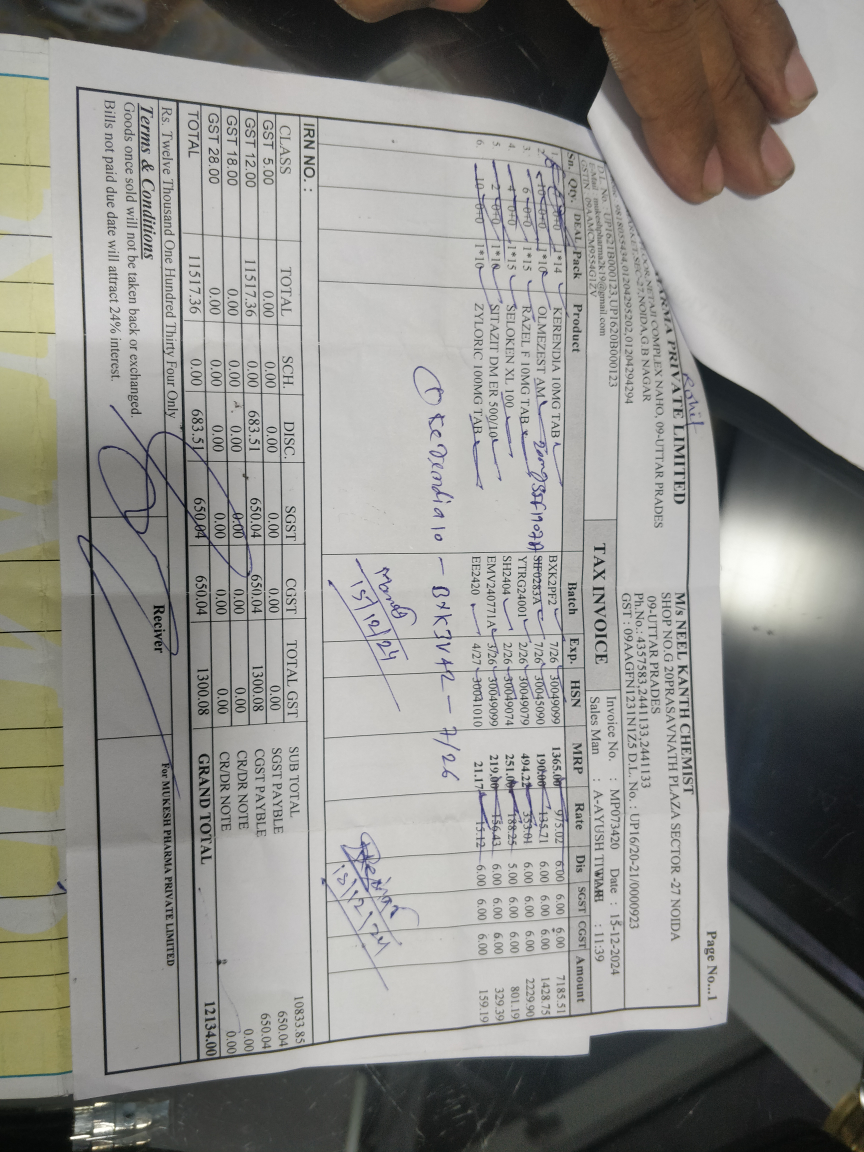 Rohit
ARMA PRIVATE LIMITED
NETAJI COMPLEX NAHO, 09-UTTAR PRADES
MARKET,SEC-27,NOIDA,G B NAGAR
9818055434,01204295202,01204294294
D.L. No. UP1621B000123,UP1620B000123
E-Mail mukeshpharma2k19@gmail.com
GSTIN 09AAMCM9554G1ZV
Page No...1
M/s NEEL KANTH CHEMIST
SHOP NO.G 20PRASAVNATH PLAZA SECTOR -27 NOIDA
09-UTTAR PRADES
Ph.No.: 4357583,2441133,2441133
GST : 09AAGFN1231N1Z5 D.L. No. : UP16/20-21/0000923
TAX INVOICE
Invoice No. : MP073420 Date : 15-12-2024
Sales Man : A-AYUSH TIWARI : 11:39
Sn. Qty. DEAL Pack Product Batch Exp. HSN MRP Rate Dis SGST CGST Amount
1. 0+0 1*14 KERENDIA 10MG TAB BXK2PF2 7/26 30049099 1365.00 975.02 6.00 6.00 6.00 7185.51
2. 10 0+0 1*10 OLMEZEST AM SIF0283A 7/26 30045090 190.00 135.71 6.00 6.00 6.00 1428.75
3. 6 0+0 1*15 RAZEL F 10MG TAB YTRG24001 2/26 30049079 494.22 353.01 6.00 6.00 6.00 2229.90
4. 4 0+0 1*15 SELOKEN XL 100 SH2404 2/26 30049074 251.00 188.25 5.00 6.00 6.00 801.19
5. 2 0+0 1*10 SITAZIT DM ER 500/10 EMV240771A 3/26 30049099 219.00 156.43 6.00 6.00 6.00 329.39
6. 10 0+0 1*10 ZYLORIC 100MG TAB EE2420 4/27 30041010 21.17 15.12 6.00 6.00 6.00 159.19
① Kerendia 10 - BXK3VA2 - 7/26
15/12/24
15/12/24
IRN NO. :
CLASS TOTAL SCH. DISC. SGST CGST TOTAL GST
GST 5.00 0.00 0.00 0.00 0.00 0.00 0.00
GST 12.00 11517.36 0.00 683.51 650.04 650.04 1300.08
GST 18.00 0.00 0.00 0.00 0.00 0.00 0.00
GST 28.00 0.00 0.00 0.00 0.00 0.00 0.00
TOTAL 11517.36 0.00 683.51 650.04 650.04 1300.08
SUB TOTAL 10833.85
SGST PAYBLE 650.04
CGST PAYBLE 650.04
CR/DR NOTE 0.00
CR/DR NOTE 0.00
GRAND TOTAL 12134.00
Rs. Twelve Thousand One Hundred Thirty Four Only
Terms & Conditions
Goods once sold will not be taken back or exchanged.
Bills not paid due date will attract 24% interest.
Reciver
For MUKESH PHARMA PRIVATE LIMITED